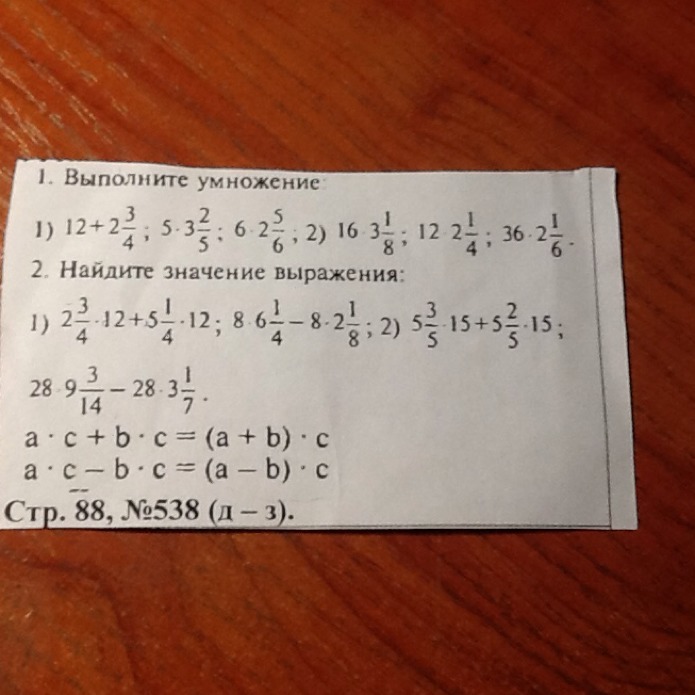 1. Выполните умножение:
1) 12+2 3/4; 5·3 2/5; 6·2 5/6; 2) 16·3 1/8; 12·2 1/4; 36·2 1/6.
2. Найдите значение выражения:
1) 2 3/4·12+5 1/4·12; 8·6 1/4−8·2 1/8; 2) 5 3/5·15+5 2/5·15;
28·9 3/14 − 28·3 1/7.
a · c + b · c = (a + b) · c
a · c − b · c = (a − b) · c
Стр. 88, №538 (д – з).